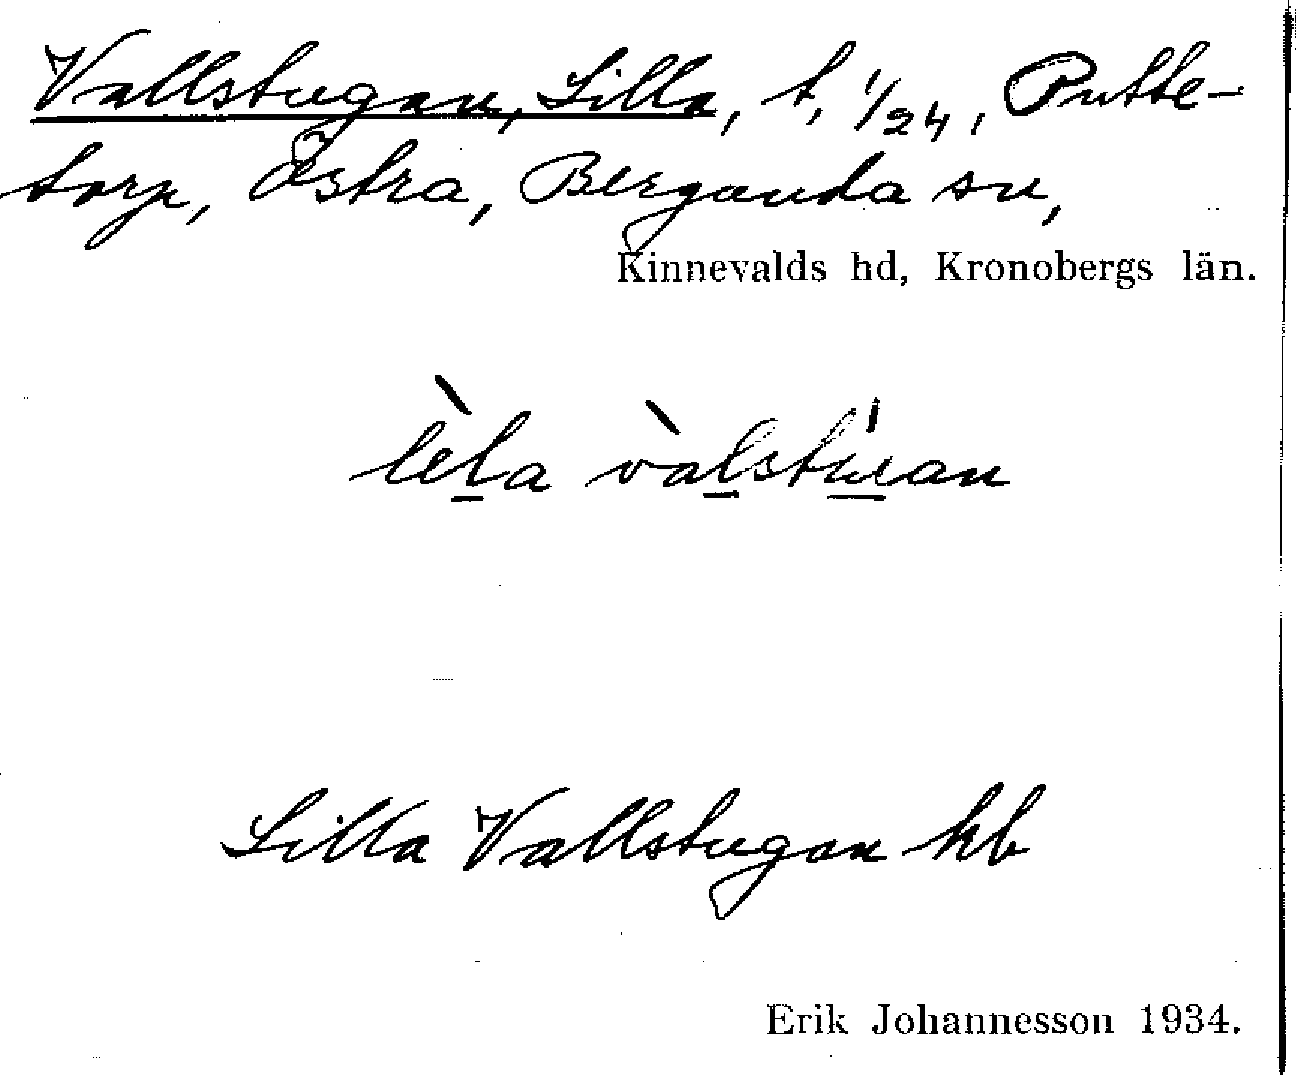 Vallstugan, Lilla, t, 1/24, Putte-
torp, Östra, Bergunda sn,
Kinnevalds hd, Kronobergs län.
lèla vàlstu̍an
Lilla Vallstugan hb
Erik Johannesson 1934.